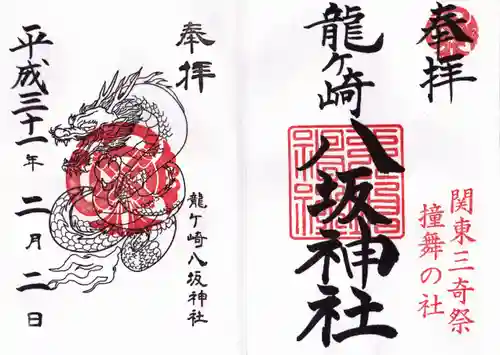 奉拝
龍ヶ崎
八坂神社
関東三奇祭
撞舞の社
奉拝
龍ケ崎八坂神社
平成三十一年二月二日